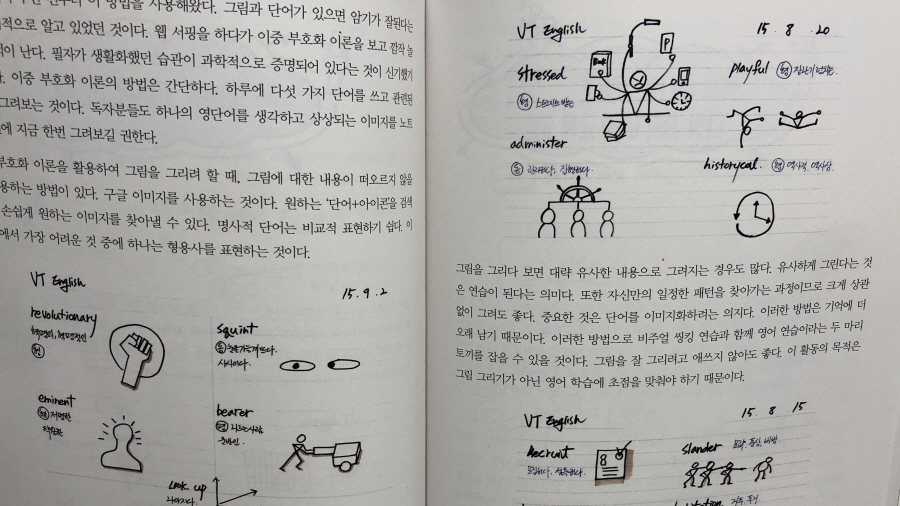 이 방법을 사용해왔다. 그림과 단어가 있으면 암기가 잘된다는
적으로 알고 있었던 것이다. 웹 서핑을 하다가 이중 부호화 이론을 보고 깜짝 놀
이 난다. 필자가 생활화했던 습관이 과학적으로 증명되어 있다는 것이 신기했기
이중 부호화 이론의 방법은 간단하다. 하루에 다섯 가지 단어를 쓰고 관련된
그려보는 것이다. 독자분들도 하나의 영단어를 생각하고 상상되는 이미지를 노트
에 지금 한번 그려보길 권한다.
부호화 이론을 활용하여 그림을 그리려 할 때, 그림에 대한 내용이 떠오르지 않을
용하는 방법이 있다. 구글 이미지를 사용하는 것이다. 원하는 '단어+아이콘'을 검색
손쉽게 원하는 이미지를 찾아낼 수 있다. 명사적 단어는 비교적 표현하기 쉽다. 이
에서 가장 어려운 것 중에 하나는 형용사를 표현하는 것이다.
VT English
15. 9. 2
revolutionary
혁명의, 혁명적인
형
squint
동 눈을 가늘게 뜨다.
사시이다.
eminent
형 저명한
탁월한
bearer
명 나르는 사람
운반인.
Look up
나아지다.
VT English
15. 8. 20
stressed
형 스트레스 받는
playful
형
administer
동 관리하다, 집행하다.
historycal.
형 역사적, 역사상
P
그림을 그리다 보면 대략 유사한 내용으로 그려지는 경우도 많다. 유사하게 그린다는 것
은 연습이 된다는 의미다. 또한 자신만의 일정한 패턴을 찾아가는 과정이므로 크게 상관
없이 그려도 좋다. 중요한 것은 단어를 이미지화하려는 의지다. 이러한 방법은 기억에 더
오래 남기 때문이다. 이러한 방법으로 비주얼 씽킹 연습과 함께 영어 연습이라는 두 마리
토끼를 잡을 수 있을 것이다. 그림을 잘 그리려고 애쓰지 않아도 좋다. 이 활동의 목적은
그림 그리기가 아닌 영어 학습에 초점을 맞춰야 하기 때문이다.
VT English
15. 8. 15
Recruit
모집하다.
slander
모략, 중상, 비방